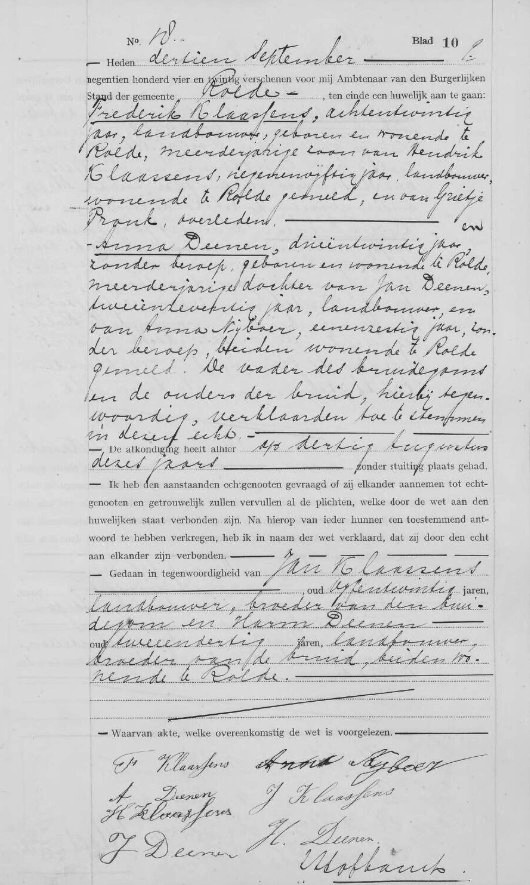 No. 18. Blad 10
— Heden dertien September
negentien honderd vier en twintig verschenen voor mij Ambtenaar van den Burgerlijken
Stand der gemeente Rolde — , ten einde een huwelijk aan te gaan:
Frederik Klaassens, achtentwintig
jaar, landbouwer, geboren en wonende te
Rolde, meerderjarige zoon van Hendrik
Klaassens, negenenvijftig jaar, landbouwer,
wonende te Rolde gemeld, en van Grietje
Pronk, overleden. en
- Anna Deenen, drieëntwintig jaar,
zonder beroep, geboren en wonende te Rolde,
meerderjarige dochter van Jan Deenen,
jaar, landbouwer, en
van Anna Nijboer, eenenzestig jaar, zon-
der beroep, beiden wonende te Rolde
gemeld. De vader des bruidegoms
en de ouders der bruid, hierbij tegen-
woordig, verklaarden toe te stemmen
in dezen echt.
— De afkondiging heeft alhier op dertig Augustus
dezes jaars zonder stuiting plaats gehad.
— Ik heb den aanstaanden echtgenooten gevraagd of zij elkander aannemen tot echt-
genooten en getrouwelijk zullen vervullen al de plichten, welke door de wet aan den
huwelijken staat verbonden zijn. Na hierop van ieder hunner een toestemmend ant-
woord te hebben verkregen, heb ik in naam der wet verklaard, dat zij door den echt
aan elkander zijn verbonden.
— Gedaan in tegenwoordigheid van Jan Klaassens
, oud jaren,
landbouwer, broeder van den brui-
degom en Harm Deenen
oud tweeendertig jaren, landbouwer,
broeder van de bruid, beiden wo-
nende te Rolde.
— Waarvan akte, welke overeenkomstig de wet is voorgelezen.
F Klaassens Anna Nijboer
A Deenen J Klaassens
H Klaassens
J Deenen H. Deenen